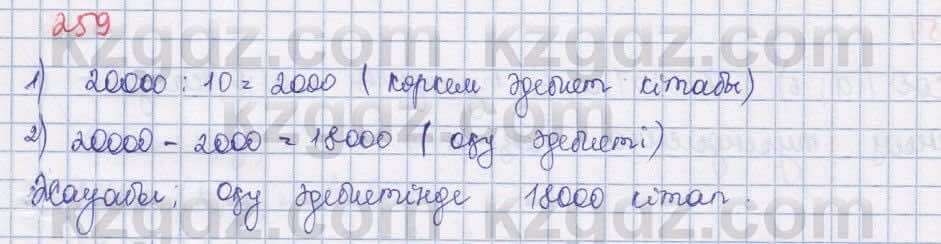 259
1) 20000 : 10 = 2000 ( көркем әдебиет кітабы)
2) 20000 - 2000 = 18000 ( оқу әдебиеті)
Жауабы: оқу әдебиетінде 18000 кітап.
kzgdz.com